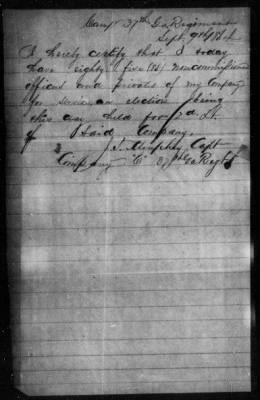 Camp 37th Ga Regiment
Sept 9th 1864
I hereby certify that I today
have eighty five (85) noncommissioned
officers and privates of my Company
for election, an election being
this day held for 2nd Lt.
of Said Company.
Capt
Company "C" 37th Ga Regt